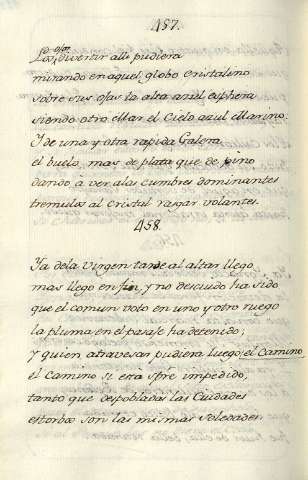 457.
Los ojos divertir alli pudiera
mirando en aquel globo cristalino
sobre sus ojas la alta azul esphera
siendo otro Mar el Cielo azul Marino.
Y de una y otra rapida Galera
el buelo, mas de plata que de pino
dando á vèr alas cumbres dominantes
tremulos al Cristal rasgar volantes.
458.
Ya dela Virgen tarde al altar llego
mas llego en fin, y no descuido ha sido
que el comun voto en uno y otro ruego
la pluma en el pasaje ha detenido;
Y quien atravesar pudiera luego el camino
el Camino si esta spre impedido,
tanto que despobladas las Ciudades
estorbos son las mismas soledades.